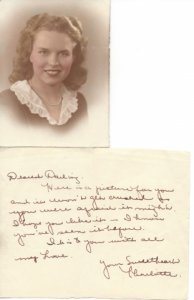 Dearest Darling,
Here is a picture for you
and it won't get crushed as
you were afraid it might
I hope you like it as I know
you've seen it before.
I love you with all
my love.
Your Sweetheart
Charlotte.